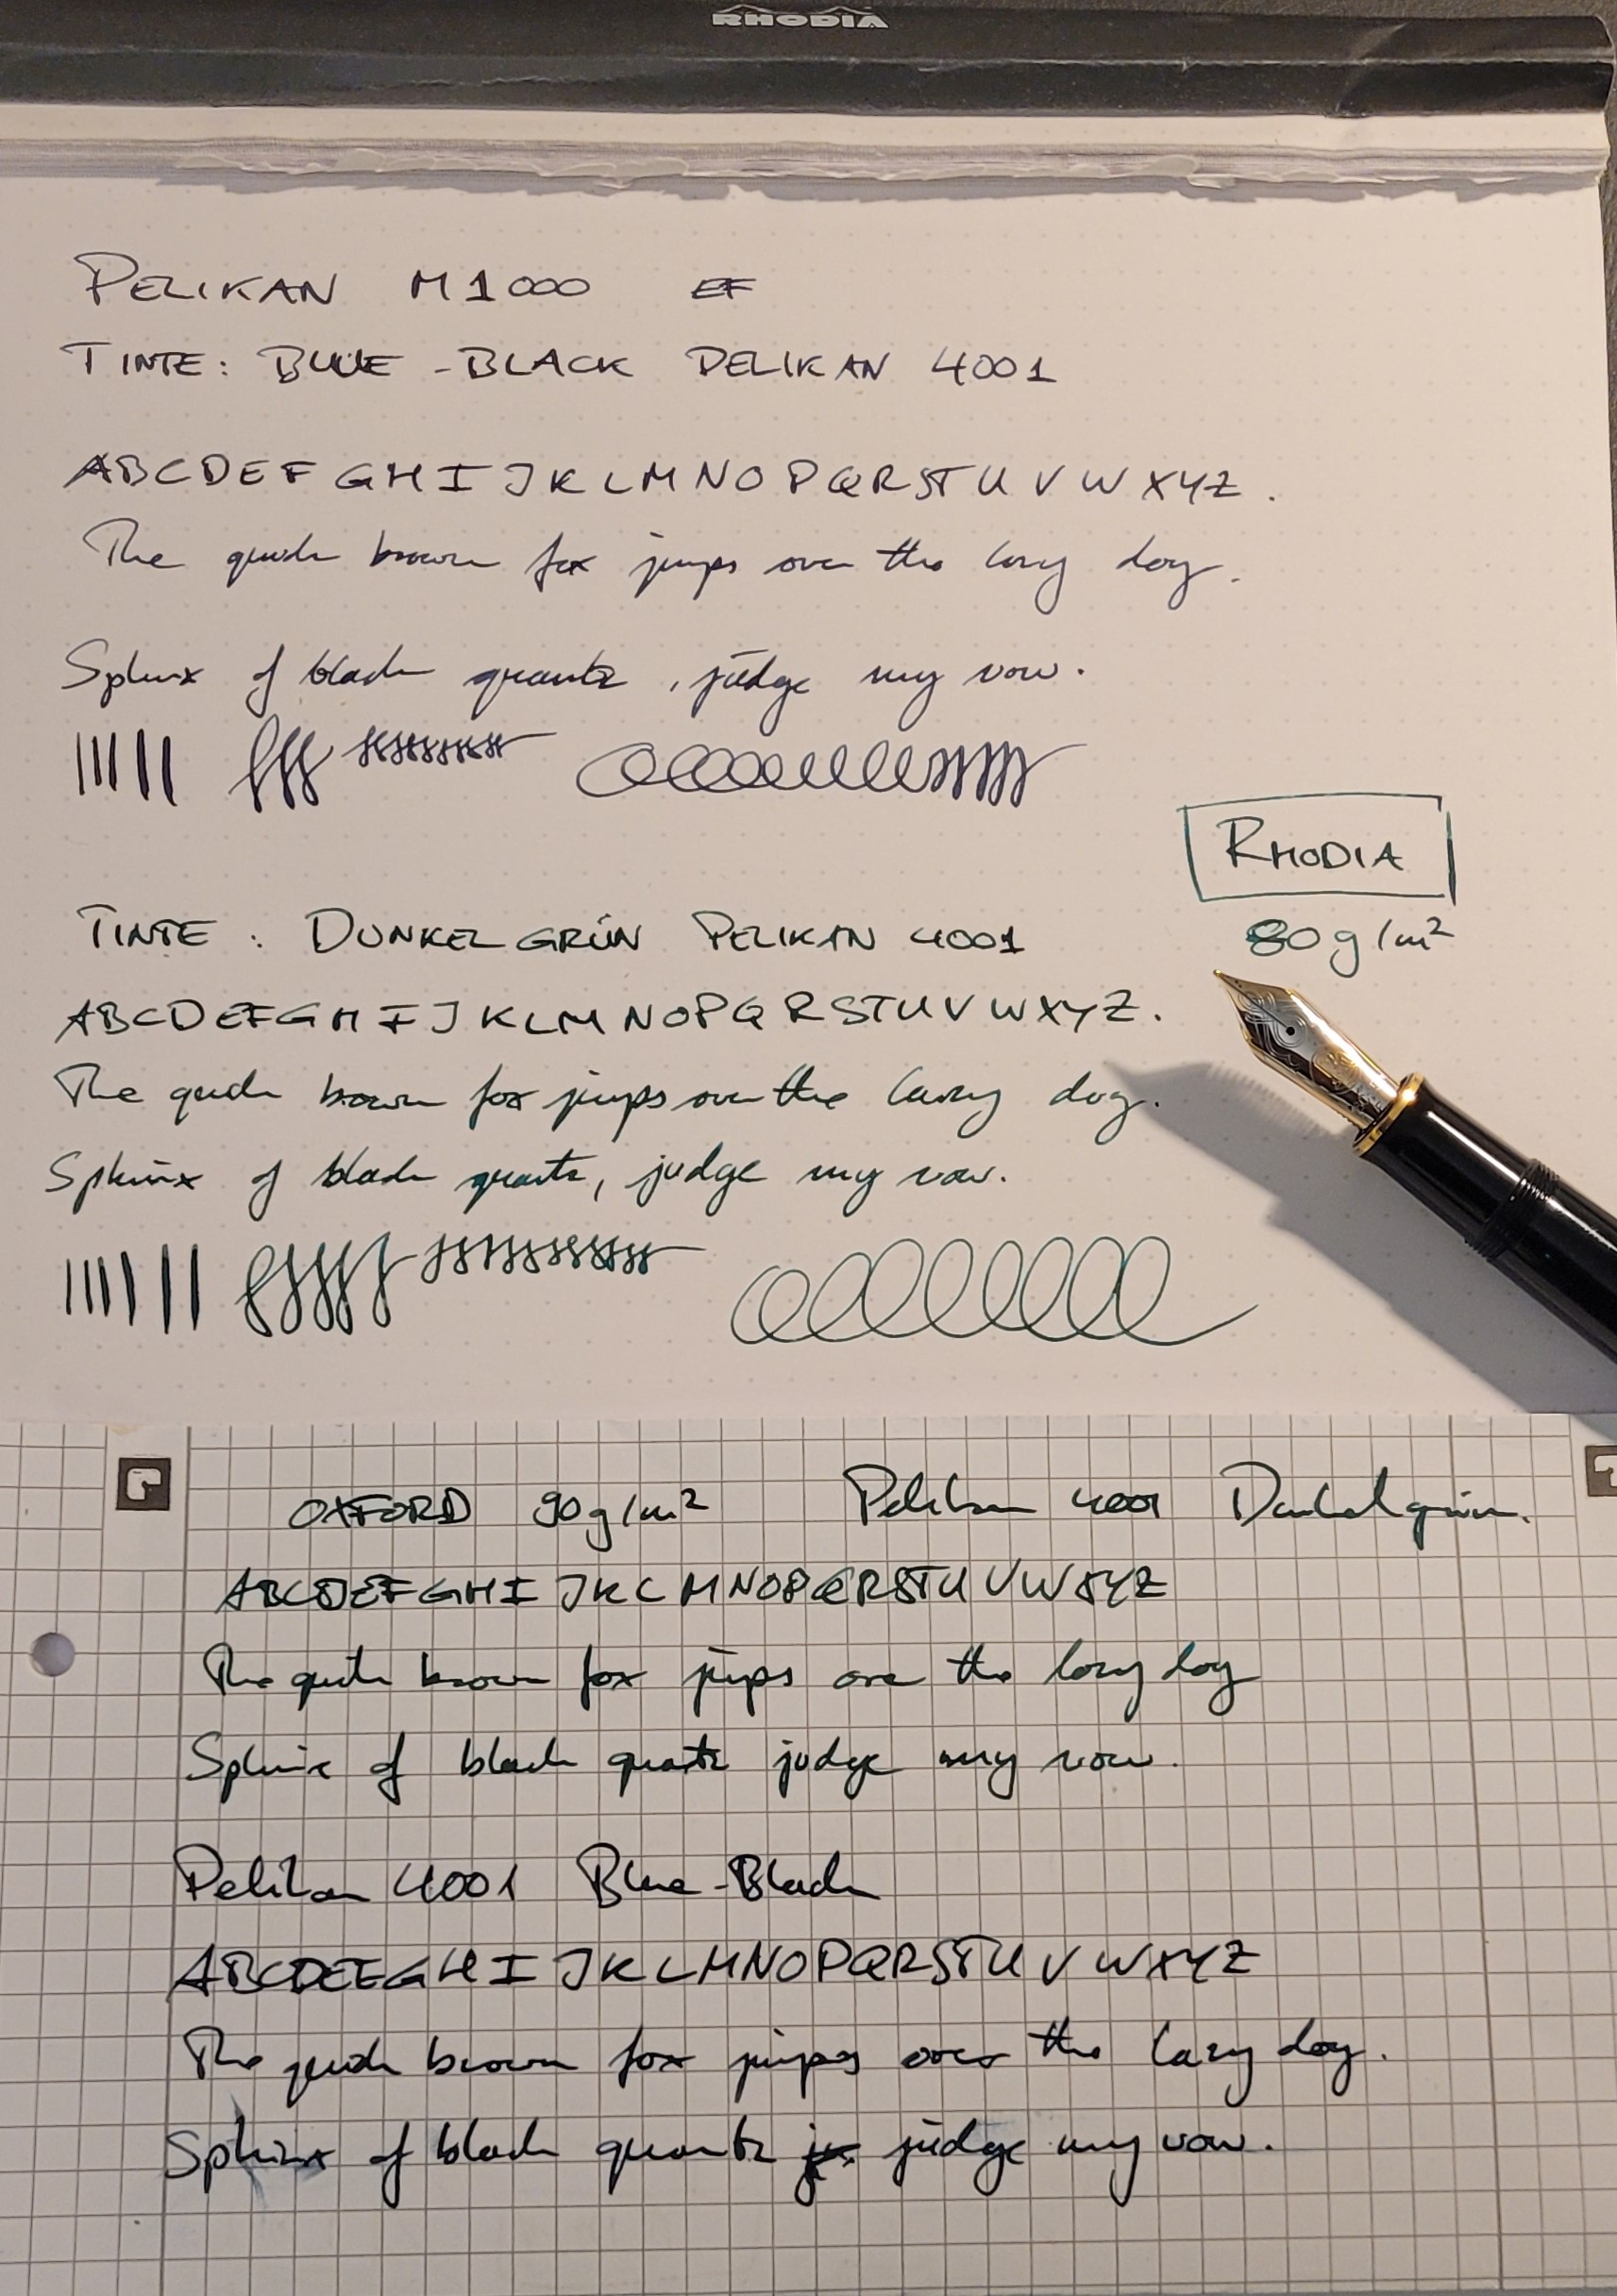 RHODIA
PELIKAN M1000 EF
TINTE: BLUE-BLACK PELIKAN 4001
ABCDEFGHIJKLMNOPQRSTUVWXYZ.
The quick brown fox jumps over the lazy dog.
Sphinx of black quartz, judge my vow.
RHODIA
80g/m²
TINTE: DUNKELGRÜN PELIKAN 4001
ABCDEFGHIJKLMNOPQRSTUVWXYZ.
The quick brown fox jumps over the lazy dog.
Sphinx of black quartz, judge my vow.
OXFORD 90g/m² Pelikan 4001 Dunkelgrün.
ABCDEFGHIJKLMNOPQRSTUVWXYZ
The quick brown fox jumps over the lazy dog
Sphinx of black quartz judge my vow.
Pelikan 4001 Blue-Black
ABCDEFGHIJKLMNOPQRSTUVWXYZ
The quick brown fox jumps over the lazy dog.
Sphinx of black quartz judge my vow.